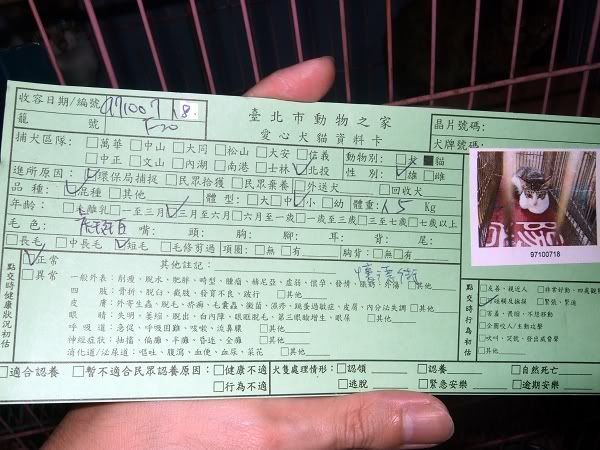 收容日期/編號 971007 18
臺北市動物之家
晶片號碼:
籠 號 F20
愛心犬貓資料卡
犬牌號碼:
捕犬區隊: □萬華 □中山 □大同 □松山 □大安 □信義 動物別: □犬 ■貓
□中正 □文山 □內湖 □南港 □士林 ☑北投 性 別: ☑雄 □雌
進所原因: ☑環保局捕捉 □民眾拾獲 □民眾棄養 □外送犬 □回收犬
品 種: ☑混種 □其他 體 型: □大 □中 ☑小 □幼 體重: 1.5 Kg
年齡: □未離乳 □一至三月 ☑三月至六月 □六月至一歲 □一歲至三歲 □三至七歲 □七歲以上
毛 色: 虎斑白 嘴: 頭: 胸: 腳: 耳: 背: 尾:
□長毛 □中長毛 ☑短毛 □毛修剪過 項圈: □無 □有 胸背: □無 □有
97100718
點交時健康狀況初估
☑正常
□異常
其他註記:
一般外表: 削瘦、脫水、肥胖、畸型、腫瘤、赫尼亞、虛弱、懷孕、發情、跳蚤、外傷 □其他
四 肢: 骨折、脫臼、截肢、發育不良、跛行 □其他
皮 膚: 外寄生蟲、脫毛、赤癬、毛囊蟲、黴菌、濕疹、跳蚤過敏症、皮屑、內分泌失調 □其他
眼 睛: 失明、萎縮、脫出、白內障、眼眶脫毛、第三眼瞼增生、眼屎 □其他
呼 吸 道: 急促、呼吸困難、咳嗽、流鼻膿 □其他
神經症狀: 抽搐、偏癱、半癱、昏迷、全癱 □其他
消化道/泌尿道: 嘔吐、腹瀉、血便、血尿、菜花 □其他
點交時行為初估
□友善、親近人 □非常好動、四處觀望
☑可碰觸及擁撲 □緊張、緊迫
□害羞、畏縮、不思移動
□企圖咬人/主動攻擊
□吠叫、哭號、發出威脅聲
□其他
□適合認養 □暫不適合民眾認養原因: □健康不適 犬隻處理情形: □認領 □認養 □自然死亡
□行為不適 □逃脫 □緊急安樂 □逾期安樂